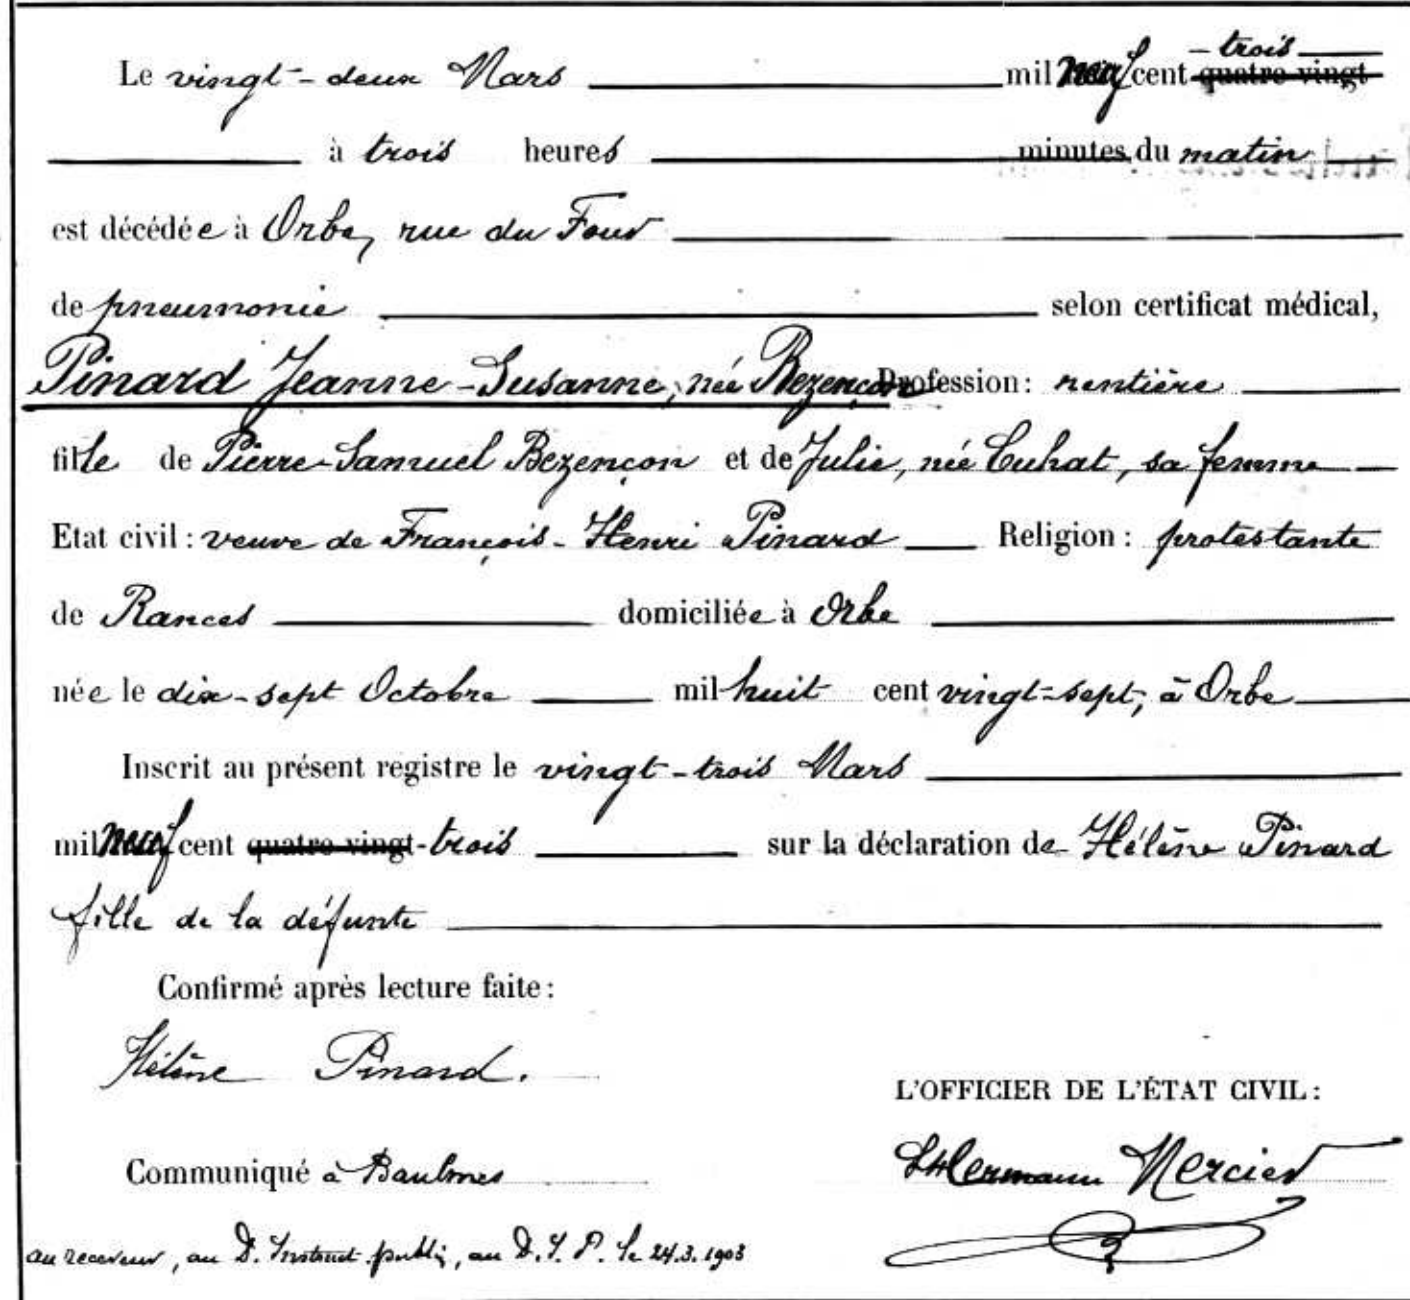 Le vingt-deux Mars mil neuf cent quatre vingt - trois
à trois heures minutes du matin
est décédée à Orbe, rue du Four
de pneumonie selon certificat médical,
Pinard Jeanne-Susanne, née Bezençon Profession: rentière
fille de Pierre-Samuel Bezençon et de Julie, née Cuhat, sa femme
Etat civil: veuve de François-Henri Pinard Religion: protestante
de Rances domiciliée à Orbe
née le dix-sept Octobre mil huit cent vingt-sept, à Orbe
Inscrit au présent registre le vingt-trois Mars
mil neuf cent quatre vingt-trois sur la déclaration de Hélène Pinard
fille de la défunte
Confirmé après lecture faite:
Hélène Pinard.
L'OFFICIER DE L'ÉTAT CIVIL:
Communiqué à Baulmes
Hermann Mercier
au receveur, au D. Instruct. publiq, au D. J. P. le 24.3.1903